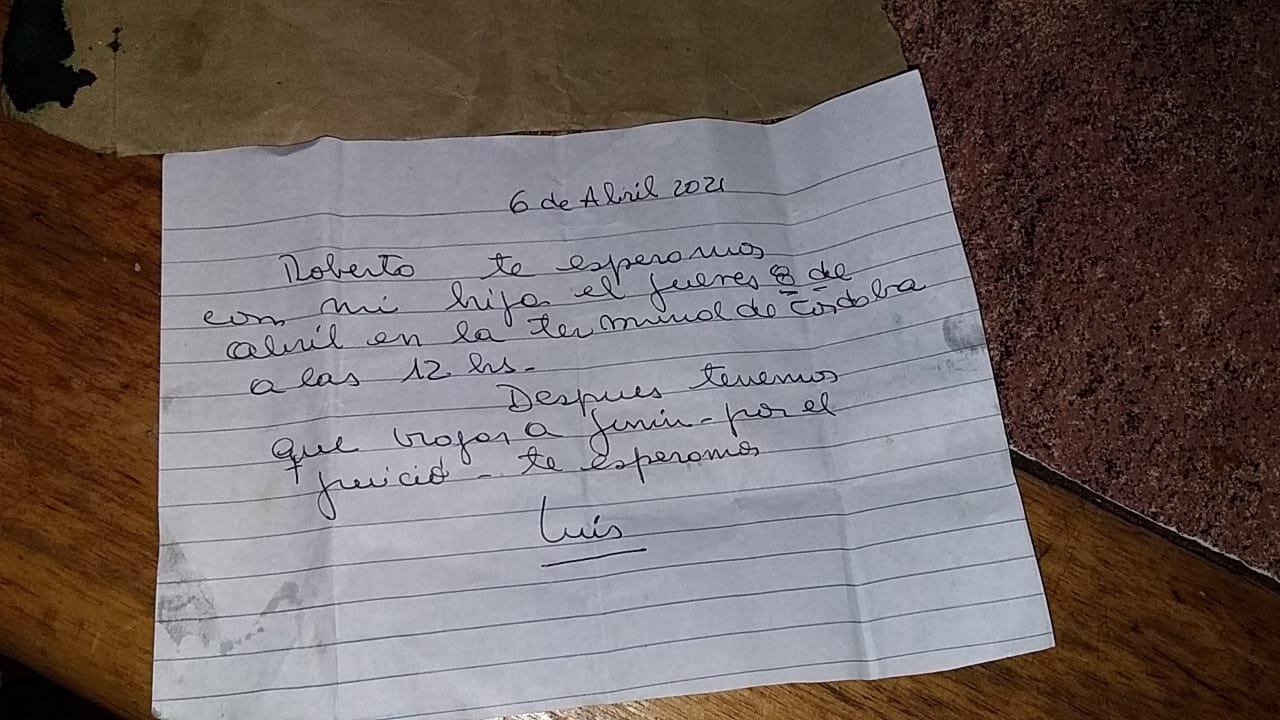 6 de Abril 2021
Roberto te esperamos
con mi hija el jueves 8 de
abril en la terminal de Córdoba
a las 12 hs.
Despues tenemos
que viajar a Junin - por el
juicio - te esperamos
Luis